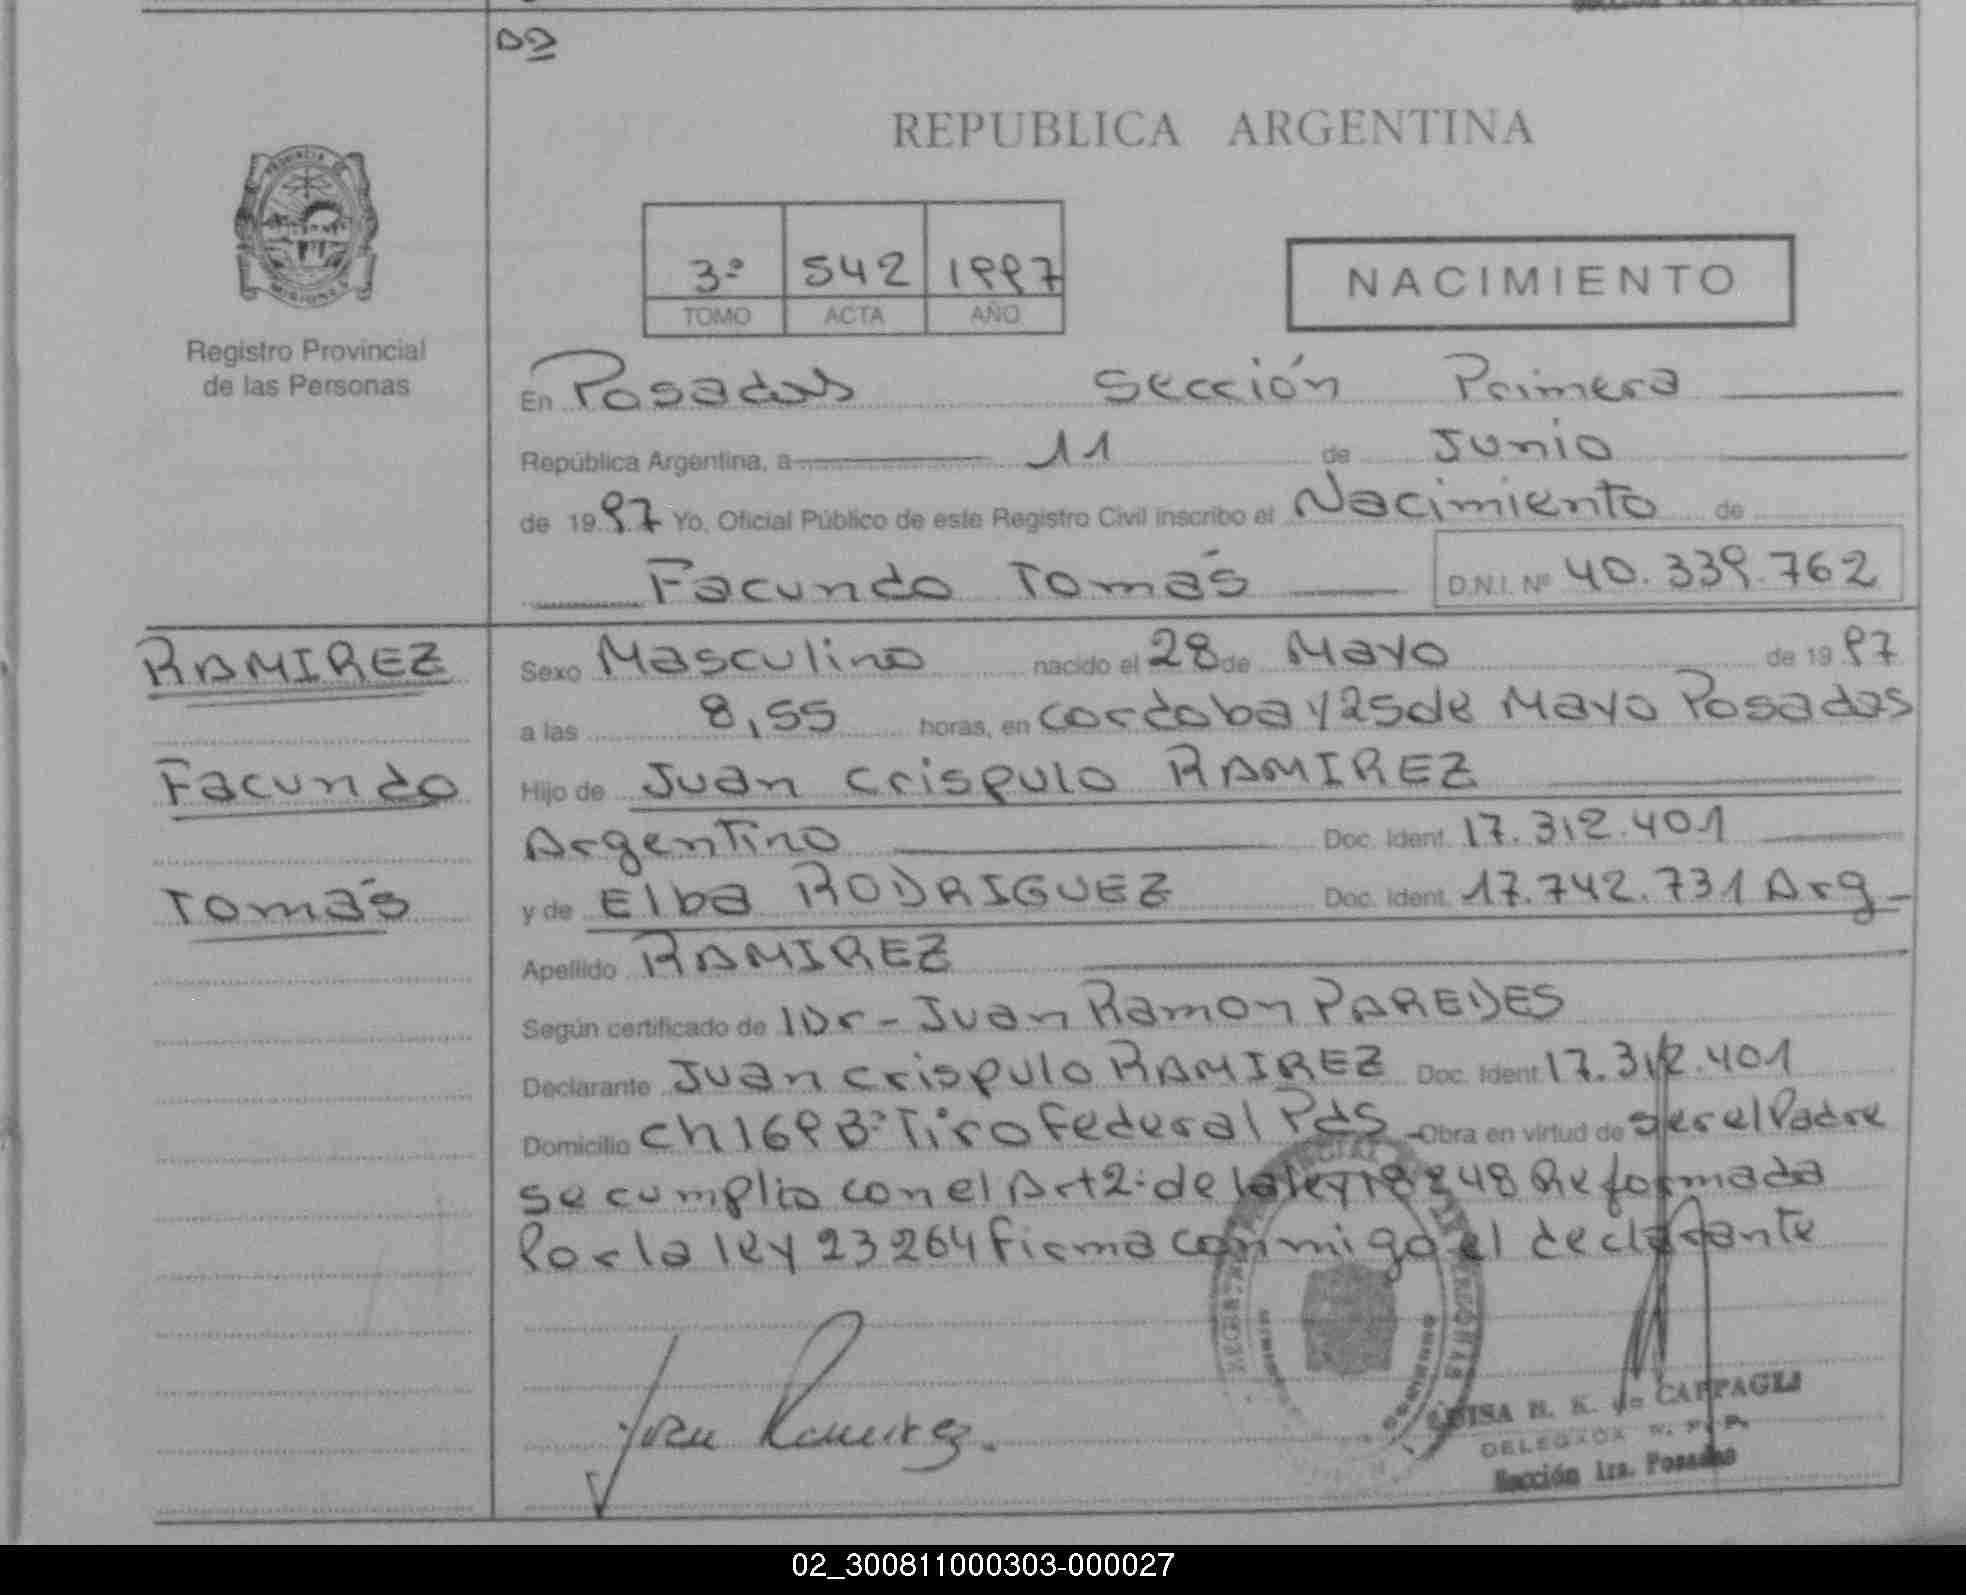 D2
REPUBLICA ARGENTINA
PROVINCIA DE
MISIONES
Registro Provincial
de las Personas
3º 542 1997
TOMO ACTA AÑO
NACIMIENTO
En Posadas Sección Primera
República Argentina, a 11 de Junio
de 1997 Yo, Oficial Público de este Registro Civil inscribo el Nacimiento de
Facundo Tomás D.N.I. Nº 40.339.762
RAMIREZ
Facundo
Tomás
Sexo Masculino nacido el 28 de Mayo de 1997
a las 8,55 horas, en Cordoba y 25 de Mayo Posadas
Hijo de Juan Crispulo RAMIREZ
Argentino Doc. Ident. 17.312.401
y de Elba RODRIGUEZ Doc. Ident. 17.742.731 Arg-
Apellido RAMIREZ
Según certificado de Dr- Juan Ramon PAREDES
Declarante Juan Crispulo RAMIREZ Doc. Ident 17.312.401
Domicilio Ch 169 Bº Tiro Federal Pds Obra en virtud de ser el Padre
se cumplio con el Art 2: de la ley 18248 Reformada
Por la ley 23264 firma conmigo el declarante
Juan Ramirez.
LUISA N. K. de CAPPAGLI
DELEGADA R. P. P.
Sección 1ra. Posadas
02_300811000303-000027